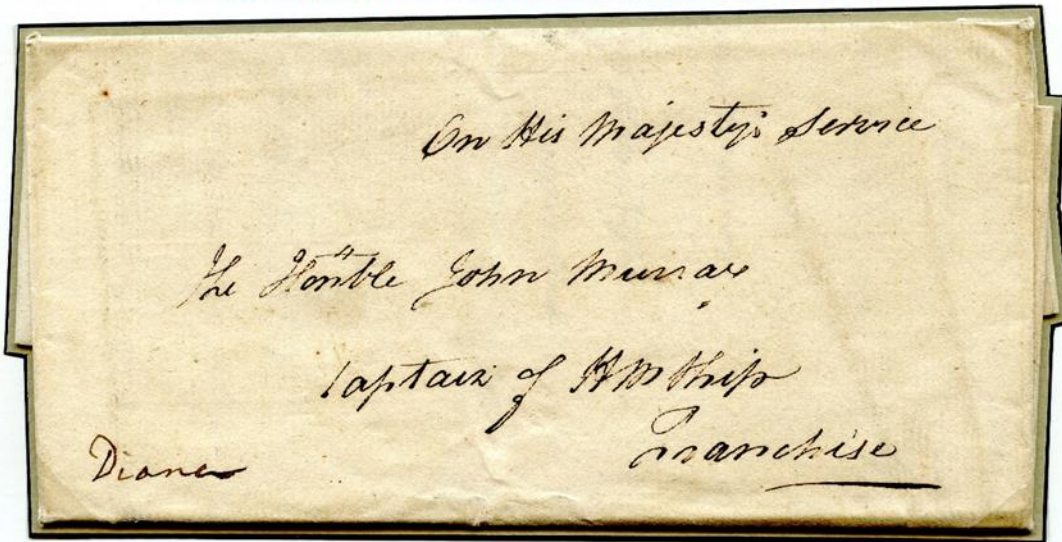 On His Majesty's Service
The Honble John Murray
Captain of HM Ship
Franchise
Diana